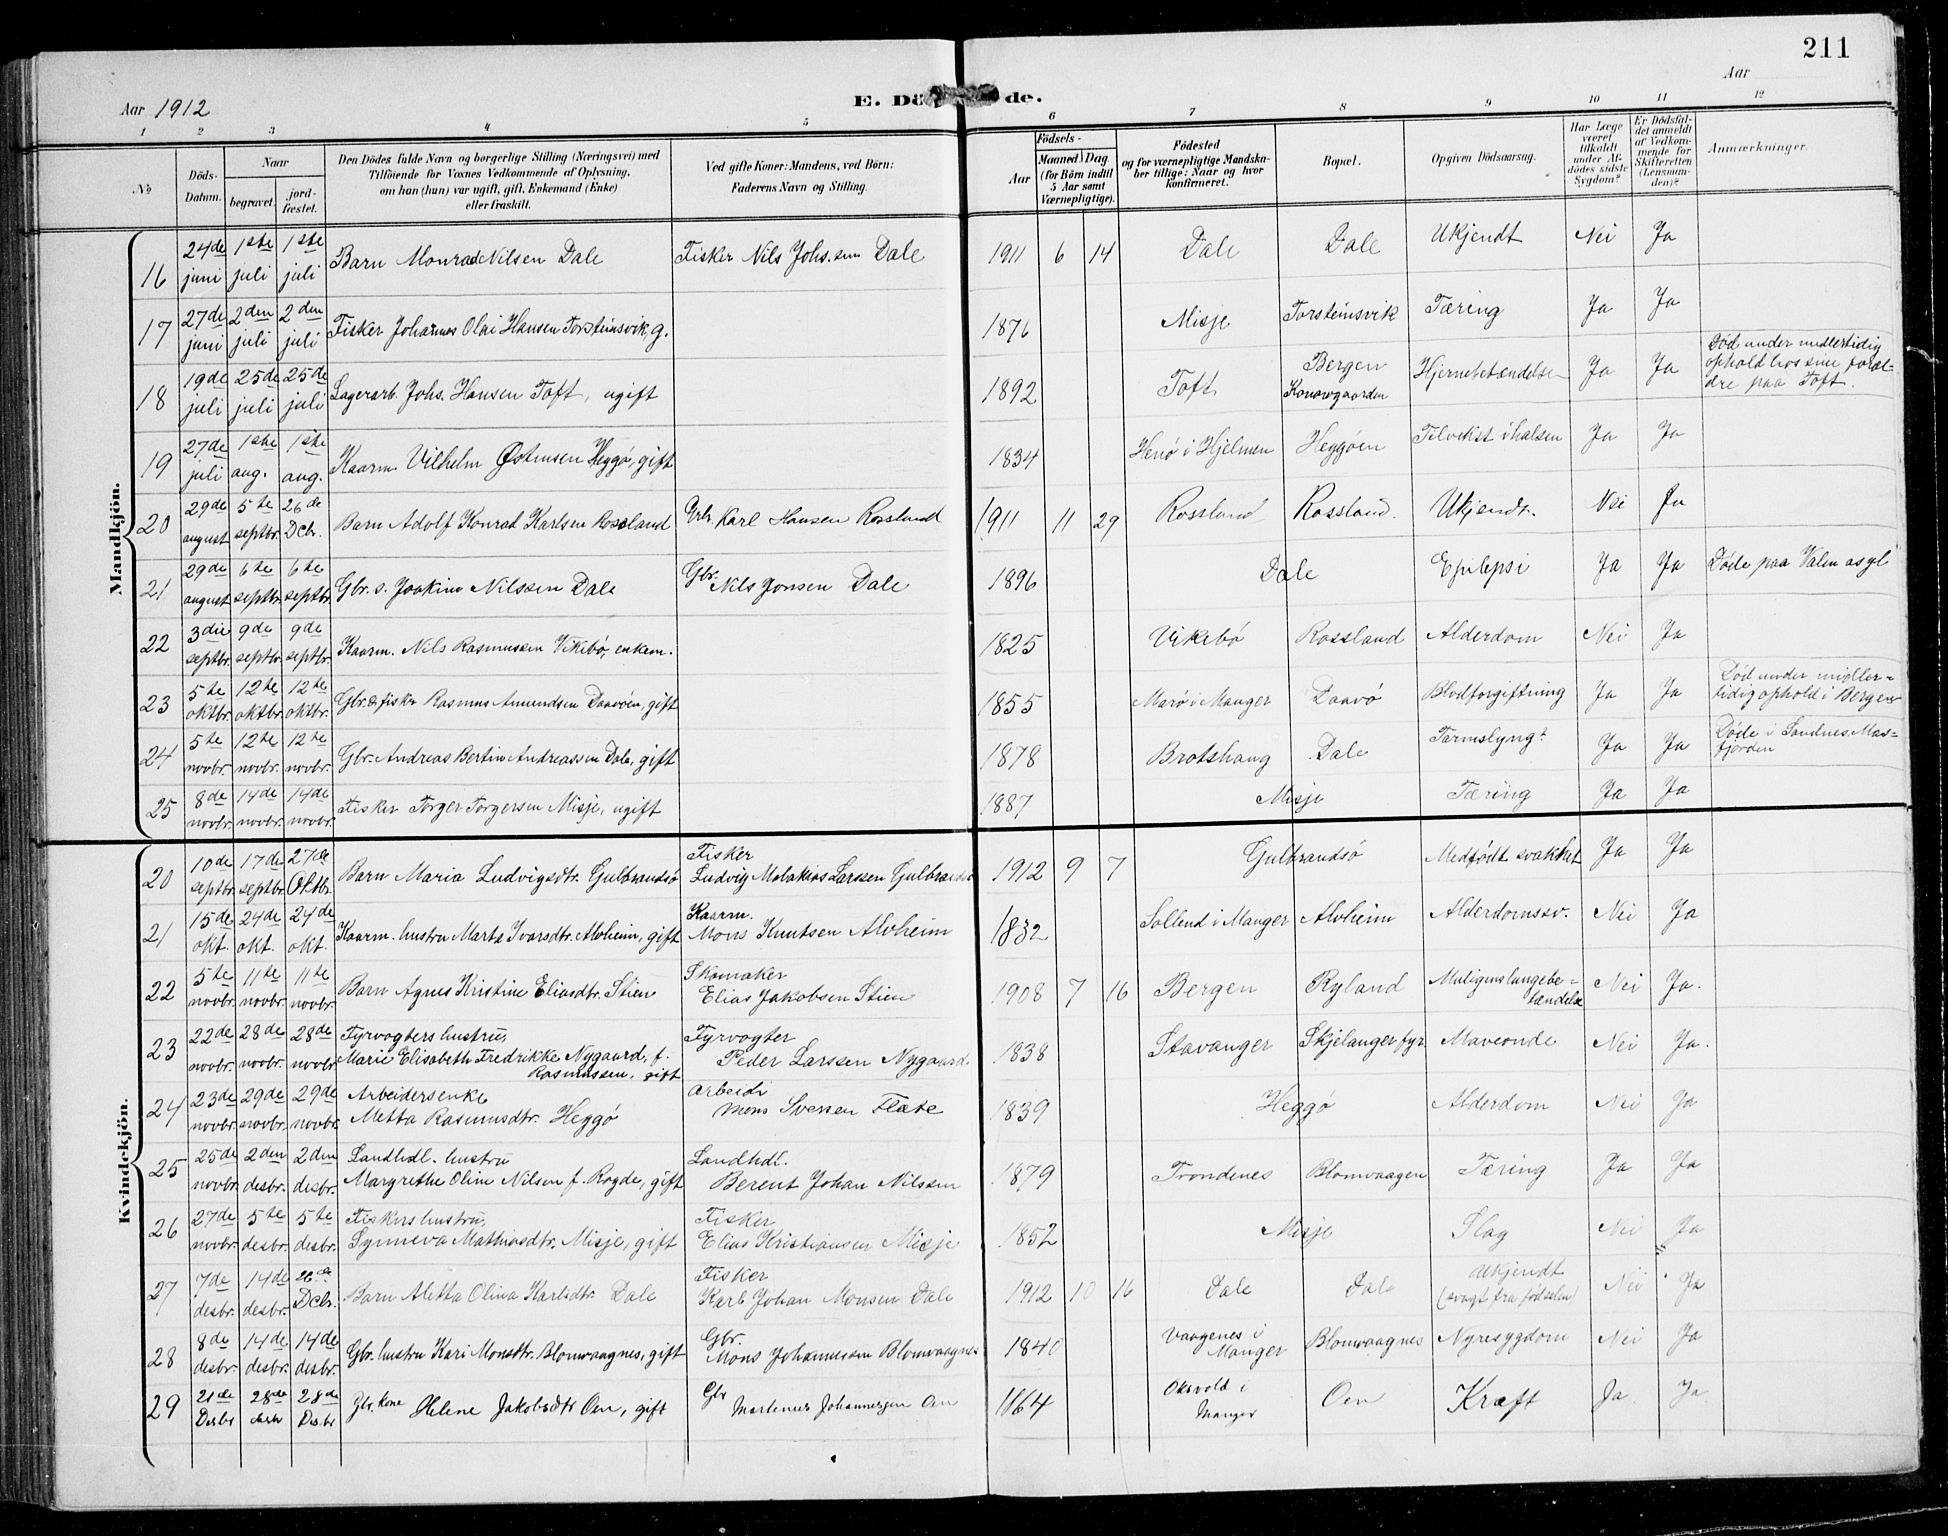 211
Aar 1912
E. Dö de.
Aar
1 2 3 4 5 6 7 8 9 10 11 12
No
Döds-Datum.
Naar
begravet.
jord-fæstet.
Den Dödes fulde Navn og borgerlige Stilling (Næringsvei) med
Tilföiende for Voxnes Vedkommende af Oplysning,
om han (hun) var ugift, gift, Enkemand (Enke)
eller fraskilt.
Ved gifte Koner: Mandens, ved Börn:
Faderens Navn og Stilling.
Födsels-
Aar
Maaned Dag
(for Börn indtil
5 Aar samt
Værnepligtige).
Födested
og for værnepligtige Mandska-
ber tillige: Naar og hvor
konfirmeret.
Bopæl.
Opgiven Dödsaarsag.
Har Læge
været
tilkaldt
under Af-
dödes sidste
Sygdom?
Er Dödsfal-
det anmeldt
af Vedkom-
mende for
Skifteretten
(Lensman-
den)?
Anmærkninger.
Mandkjön.
16 24de juni 1ste juli 1ste juli Barn Monrad Nilsen Dale Fisker Nils Johs.sen Dale 1911 6 14 Dale Dale Ukjendt Nei Ja
17 27de juni 2den juli 2den juli Fisker Johannes Olai Hansen Torsteinsvik g. 1876 Misje Torsteinsvik Tæring Ja Ja
18 19de juli 25de juli 25de juli Lagerarb. Johs. Hansen Toft, ugift 1892 Toft Bergen Konowgaarden Hjernebetændelse Ja Ja Død under midlertidig ophold hos sine foræl-dre paa Toft.
19 27de juli 1ste aug. 1ste aug. Kaarm. Vilhelm Østensen Heggø, gift 1834 Henø i Hjelmen Heggøen Tilvekst i halsen Ja Ja
20 29de august 5te septbr. 26de Dcbr. Barn Adolf Konrad Karlsen Rossland Gbr. Karl Hansen Rossland 1911 11 29 Rossland Rossland. Ukjendt. Nei Ja
21 29de august 6te septbr. 6te septbr. Gbr. s. Joakim Nilssen Dale Gbr. Nils Jonsen Dale 1896 Dale Epilepsi Ja Ja Døde paa Valen asyl
22 3die septbr. 9de septbr. 9de septbr. Kaarm. Nils Rasmussen Vikebø, enkem. 1825 Vikebø Rossland Alderdom Nei Ja
23 5te oktbr. 12te oktbr. 12te oktbr. Gbr. & fisker Rasmus Amundsen Daavøen, gift 1855 Marø i Manger Daavø Blodforgiftning Ja Ja Død under midler-tidig ophold i Bergen
24 5te novbr. 12te novbr. 12te novbr. Gbr. Andreas Bertin Andreassen Dale, gift 1878 Brotshaug Dale Tarmslyngn. Ja Ja Døde i Sandnes, Mas-fjorden
25 8de novbr. 14de novbr. 14de novbr. Fisker Torger Torgersen Misje, ugift 1887 Misje Tæring Ja Ja
Kvindekjön.
20 10de septbr. 17de septbr. 27de Oktbr. Barn Maria Ludvigsdtr. Gulbrandsø Fisker Ludvig Malakias Larssen Gulbrandsø 1912 9 7 Gulbrandsø Medfødt svakhet Ja Ja
21 15de okt. 24de okt. 24de okt. Kaarm. hustru Marta Ivarsdtr. Alvheim, gift Kaarm. Mons Knutsen Alvheim 1832 Sollend i Manger Alvheim Alderdomssv. Nei Ja
22 5te novbr. 11te novbr. 11te novbr. Barn Agnes Kristine Eliasdtr. Stien Skomaker Elias Jakobsen Stien 1908 7 16 Bergen Ryland Muligens lungebe-tændelse Nei Ja.
23 22de novbr. 28de novbr. 28de novbr. Fyrvogters hustru, Marie Elisabeth Fredrikke Nygaard, f. Rasmussen, gift Fyrvogter Peder Larssen Nygaard. 1838 Stavanger Skjelanger fyr Maveonde Nei Ja.
24 23de novbr. 29de novbr. 29de novbr. Arbeidersenke Metta Rasmusdtr. Heggø Arbeider Mons Svensen Flate 1839 Heggø Alderdom Nei Ja
25 25de novbr. 2den desbr. 2den desbr. Landhdl. hustru Margrethe Oline Nilsen f. Rogde, gift Landhdl. Berent Johan Nilssen 1879 Trondenes Blomvaagen Tæring Ja Ja
26 27de novbr. 5te desbr. 5te desbr. Fiskers hustru, Synneva Mathiasdtr. Misje, gift Fisker Elias Kristiansen Misje 1852 Misje Slag Nei Ja
27 7de desbr. 14de desbr. 26de Dcbr. Barn Aletta Olina Karlsdtr. Dale Fisker Karl Johan Monsen Dale 1912 10 16 Dale Dale Ukjendt (svagt fra fødselen) Nei Ja
28 8de desbr. 14de desbr. 14de desbr. Gbr. hustru Kari Monsdtr. Blomvaagnes, gift Gbr. Mons Johannessen Blomvaagnes 1840 Vaagenes i Manger Blomvaagnes Nyresygdom Nei Ja
29 21de Desbr 28de desbr 28de Desbr Gbr. kone Helene Jakobsdtr Oen, gift Gbr Martenius Johannessen Oen 1864 Oksvold i Manger Oen Kræft Ja Ja